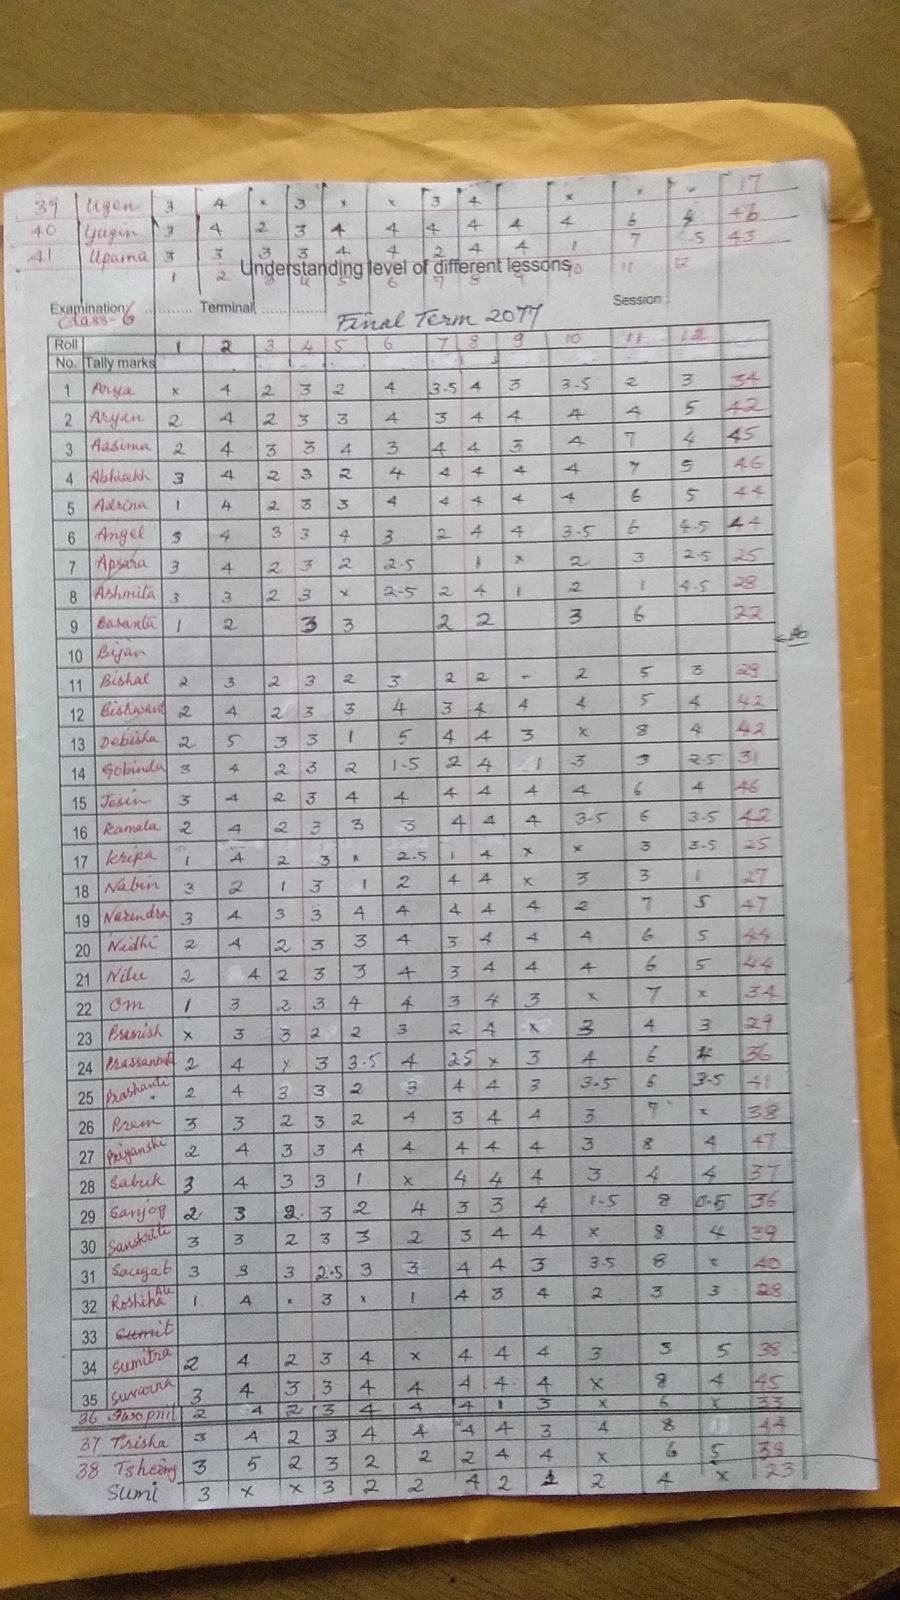 39 Ugen 3 4 x 3 x x 3 4 x 17
40 Yugin 3 4 2 3 4 4 4 4 4 4 6 4 46
41 Upama 3 3 3 3 4 4 2 4 4 1 7 .5 43
1 2 3 4 5 6 7 8 9 10 11 12
Understanding level of different lessons
Examination ............ Terminal ................ Session
Class-6 Final Term 2077
Roll No. Tally marks 1 2 3 4 5 6 7 8 9 10 11 12
1 Arya x 4 2 3 2 4 3.5 4 3 3.5 2 3 34
2 Aryan 2 4 2 3 3 4 3 4 4 4 4 5 42
3 Aasima 2 4 3 3 4 3 4 4 3 4 7 4 45
4 3 4 2 3 2 4 4 4 4 4 7 5 46
5 Adrina 1 4 2 3 3 4 4 4 4 4 6 5 44
6 Angel 3 4 3 3 4 3 2 4 4 3.5 6 4.5 44
7 Apsara 3 4 2 3 2 2.5 1 x 2 3 2.5 25
8 Ashmita 3 3 2 3 x 2.5 2 4 1 2 1 4.5 28
9 Basanta 1 2 3 3 2 2 3 6 22
10 Bijan Ab
11 Bishal 2 3 2 3 2 3 2 2 - 2 5 3 29
12 2 4 2 3 3 4 3 4 4 4 5 4 42
13 Debisha 2 5 3 3 1 5 4 4 3 x 8 4 42
14 Gobinda 3 4 2 3 2 1.5 2 4 1 3 3 2.5 31
15 3 4 2 3 4 4 4 4 4 4 6 4 46
16 Kamala 2 4 2 3 3 3 4 4 4 3.5 6 3.5 42
17 Kripa 1 4 2 3 x 2.5 1 4 x x 3 3.5 25
18 Nabin 3 2 1 3 1 2 4 4 x 3 3 1 27
19 Narendra 3 4 3 3 4 4 4 4 4 2 7 5 47
20 Nidhi 2 4 2 3 3 4 3 4 4 4 6 5 44
21 Nilu 2 4 2 3 3 4 3 4 4 4 6 5 44
22 Om 1 3 2 3 4 4 3 4 3 x 7 x 34
23 x 3 3 2 2 3 2 4 x 3 4 3 29
24 2 4 x 3 3.5 4 25 x 3 4 6 4 36
25 2 4 3 3 2 3 4 4 3 3.5 6 3.5 41
26 Prem 3 3 2 3 2 4 3 4 4 3 7 x 38
27 2 4 3 3 4 4 4 4 4 3 8 4 47
28 Sabuk 3 4 3 3 1 x 4 4 4 3 4 4 37
29 Sanjog 2 3 2 3 2 4 3 3 4 1.5 8 0.5 36
30 3 3 2 3 3 2 3 4 4 x 8 4 39
31 Saugat 3 3 3 2.5 3 3 4 4 3 3.5 8 x 40
32 1 4 x 3 x 1 4 3 4 2 3 3 28
33 Sumit
34 Sumitra 2 4 2 3 4 x 4 4 4 3 3 5 38
35 Suvarna 3 4 3 3 4 4 4 4 4 x 8 4 45
36 2 4 2 3 4 4 4 1 3 x 6 x 33
37 Trisha 3 4 2 3 4 4 4 4 3 4 8 44
38 Tshering 3 5 2 3 2 2 2 4 4 x 6 5 38
Sumi 3 x x 3 2 2 4 2 2 4 x 23